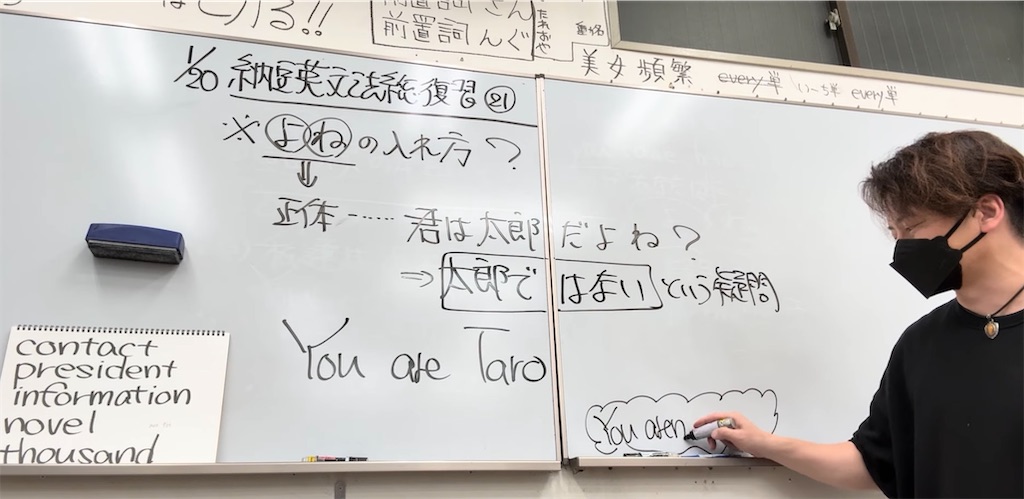 前置詞 んぐ
美女頻繁 every単 いーち単 every単
1/20 納豆英文法総復習 ㉑
※よねの入れ方?
⇓
正体……君は太郎だよね?
⇒太郎ではないという疑問
You are Taro
You aren
contact
president
information
novel
thousand